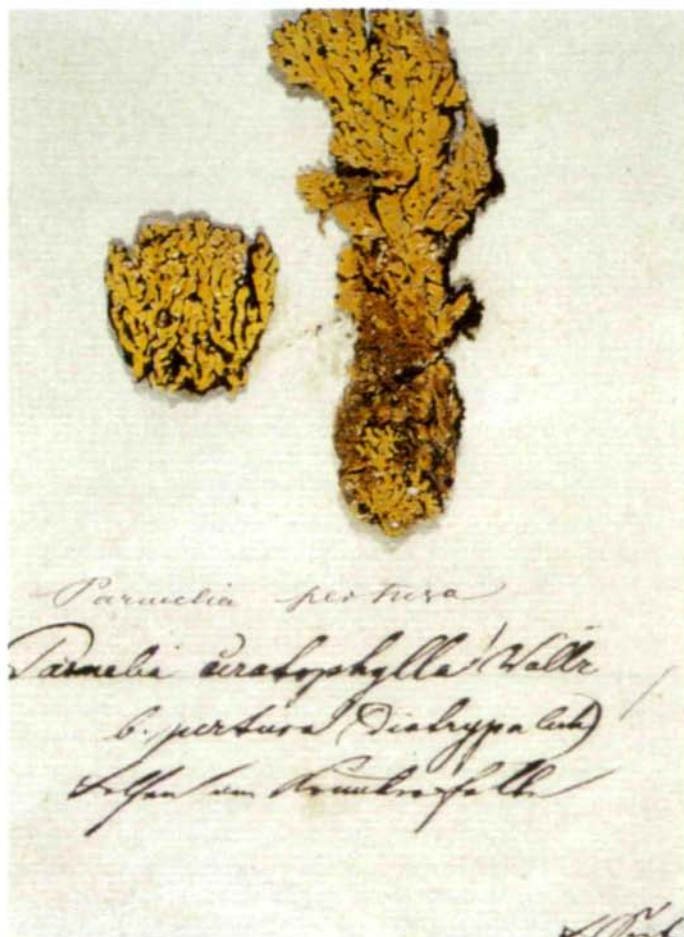 Parmelia pertusa
Parmelia ceratophylla Wallr
b. pertusa (diatrypa
Felsen am